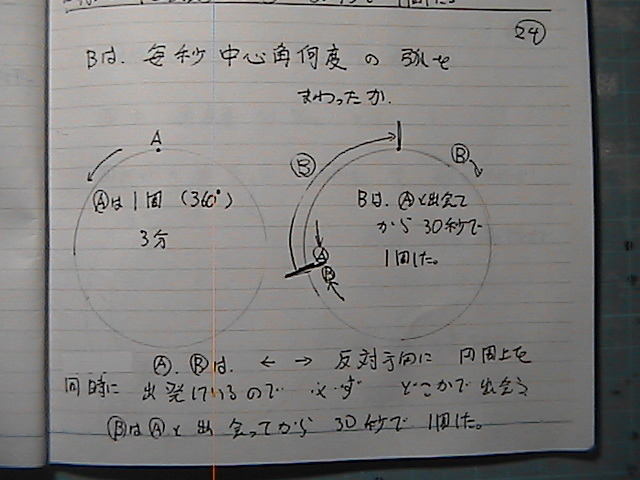 24
Bは、毎秒 中心角何度 の 弧を
まわったか.
A
Ⓐは1回 (360°)
3分
Ⓑ
Ⓑ
Bは、Ⓐと出会って
から 30秒で
1回した。
Ⓐ
Ⓑ
Ⓐ. Ⓑは. ← → 反対方向に 円周上を
同時に 出発しているので 必ず どこかで出会う
ⒷはⒶと 出会ってから 30秒で 1回した。